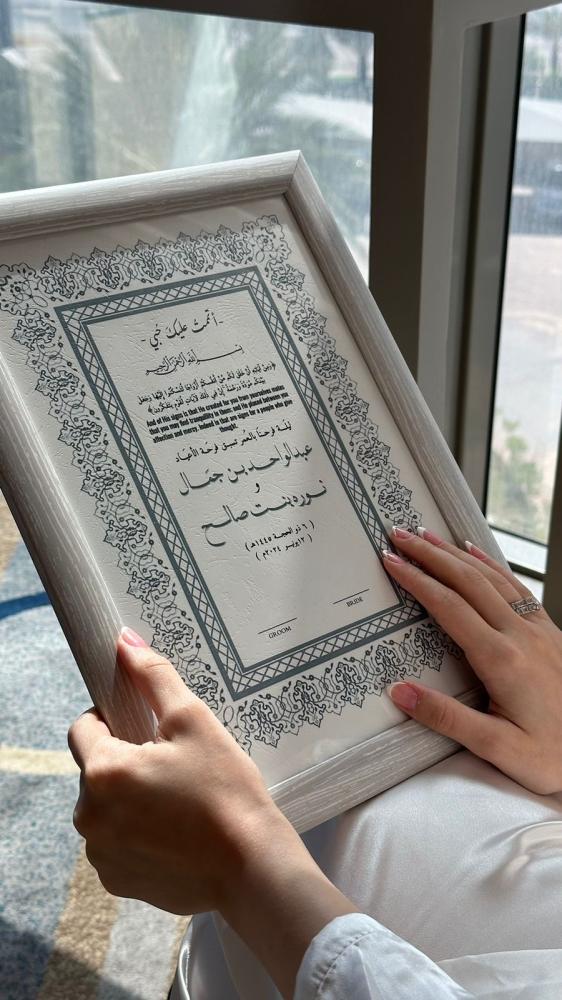 - أتممت عليك حبي -
بسم الله الرحمن الرحيم
﴿وَمِنْ آيَاتِهِ أَنْ خَلَقَ لَكُم مِّنْ أَنفُسِكُمْ أَزْوَاجًا لِّتَسْكُنُوا إِلَيْهَا وَجَعَلَ
بَيْنَكُم مَّوَدَّةً وَرَحْمَةً ۚ إِنَّ فِي ذَٰلِكَ لَآيَاتٍ لِّقَوْمٍ يَتَفَكَّرُونَ﴾
And of His signs is that He created for you from yourselves mates
that you may find tranquility in them; and He placed between you
affection and mercy. Indeed in that are signs for a people who give
thought.
ليلة فرحنا بالعمر تسبق فرحة الأعياد
عبدالواحد بن جمال
و
نوره بنت صالح
( ٦ ذو الحجة ١٤٤٥هـ )
( ١٢ يونيو ٢٠٢٤م )
GROOM
BRIDE